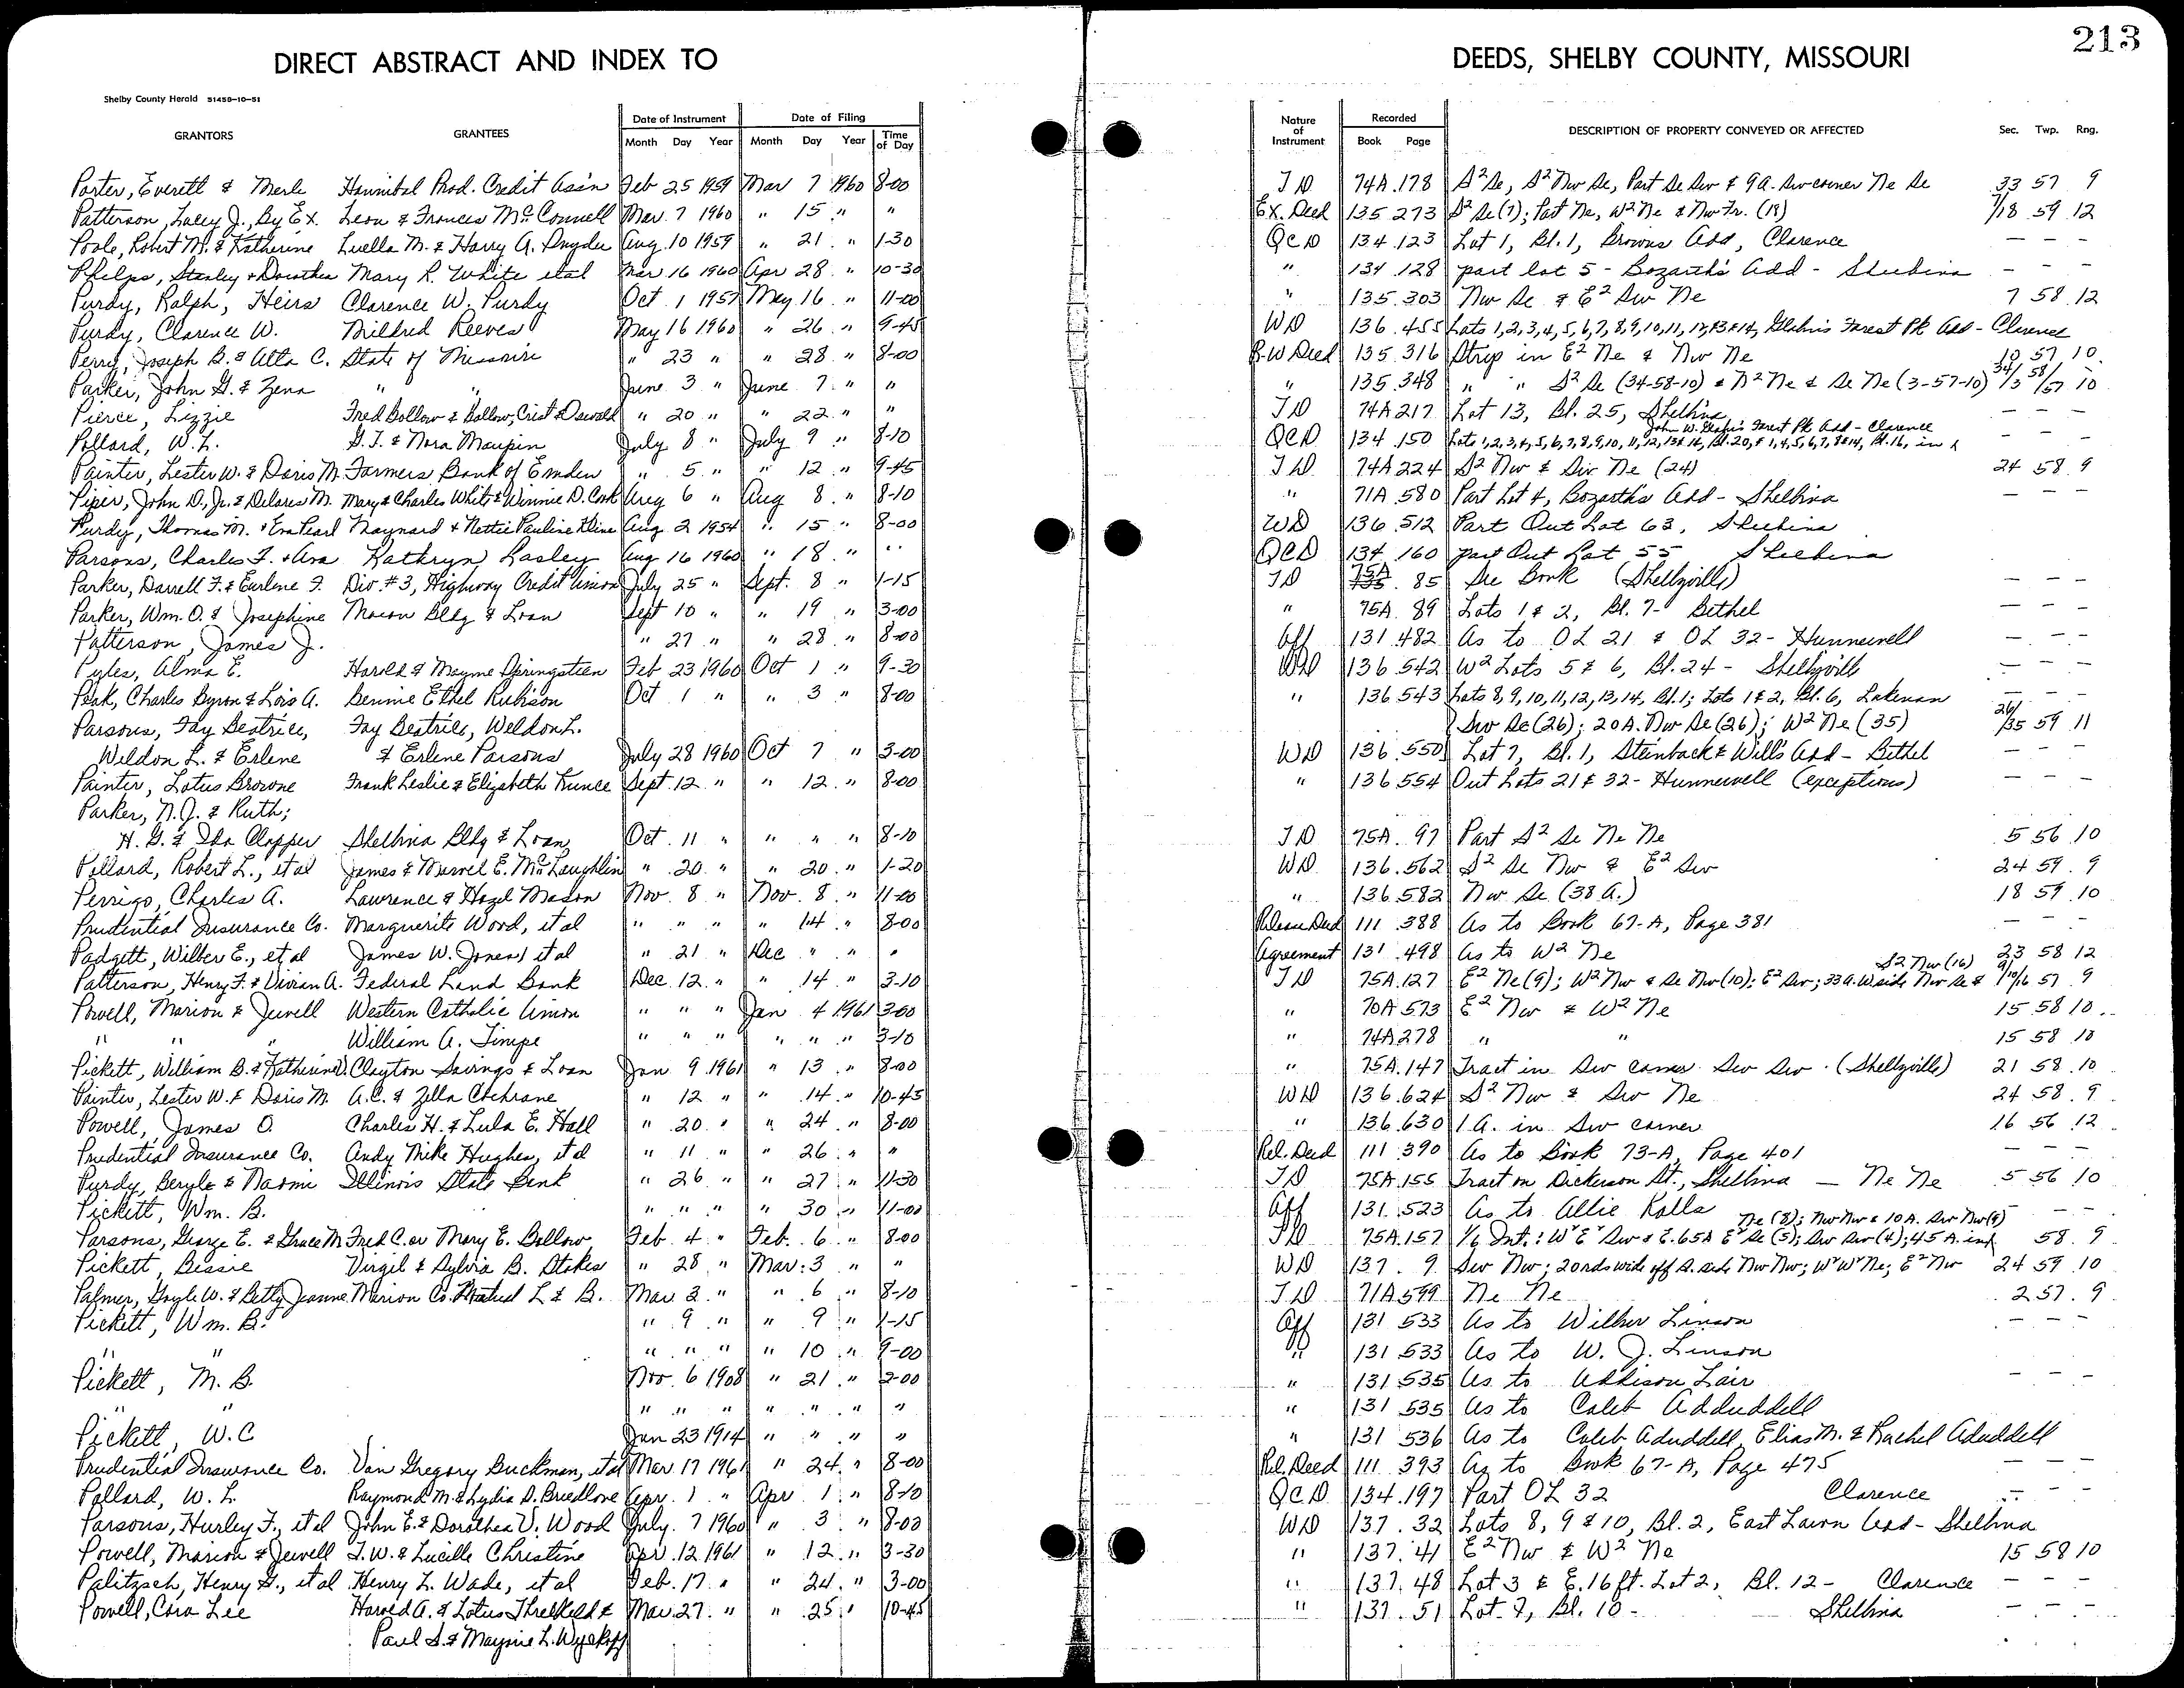 213
DIRECT ABSTRACT AND INDEX TO
DEEDS, SHELBY COUNTY, MISSOURI
Shelby County Herald 51458-10-51
GRANTORS GRANTEES Date of Instrument Date of Filing
Month Day Year Month Day Year Time of Day
Nature of Instrument Recorded Book Page DESCRIPTION OF PROPERTY CONVEYED OR AFFECTED Sec. Twp. Rng.
Porter, Everett & Merle Hannibal Prod. Credit Ass'n Feb 25 1959 Mar 7 1960 8-00
Patterson, Lucy J., By Ex. Leon & Frances McConnell Mar. 7 1960 " 15 " "
Poole, Robert M. & Katherine Luella M. & Harry A. Snyder Aug. 10 1959 " 21 " 1-30
Phelps, Stanley & Dorothea Mary R. White et al Mar 16 1960 Apr 28 " 10-30
Purdy, Ralph, Heirs Clarence W. Purdy Oct 1 1957 May 16 " 11-00
Purdy, Clarence W. Mildred Reeves May 16 1960 " 26 " 9-45
Perry, Joseph B. & Alta C. State of Missouri " 23 " " 28 " 8-00
Parker, John G. & Zena " " June 3 " June 7 " "
Pierce, Lizzie Fred Bollow & Bollow, Crist & Oswald " 20 " " 22 " "
Pollard, W. L. G. T. & Nora Maupin July 8 " July 9 " 8-10
Painter, Lester W. & Doris M. Farmers Bank of Emden " 5 " " 12 " 9-45
Piper, John D., Jr. & Delores M. Mary & Charles White & Winnie D. Cook Aug 6 " Aug 8 " 8-10
Purdy, Thomas M. & Eva Pearl Maynard & Nettie Pauline Kline Aug 2 1954 " 15 " 8-00
Parsons, Charles F. & Ava Kathryn Lasley Aug 16 1960 " 18 " "
Parker, Darrell F. & Earlene F. Div. #3, Highway Credit Union July 25 " Sept. 8 " 1-15
Parker, Wm. O. & Josephine Macon Bldg & Loan Sept 10 " " 19 " 3-00
Patterson, James J. " 27 " " 28 " 8-00
Pyles, Alma E. Harold & Mayme Springstien Feb 23 1960 Oct 1 " 9-30
Peak, Charles Byron & Lois A. Bennie Ethel Rubison Oct 1 " " 3 " 8-00
Parsons, Fay Beatrice, Fay Beatrice, Weldon L.
Weldon L. & Erlene & Erlene Parsons July 28 1960 Oct 7 " 3-00
Painter, Lotus Browne Frank Leslie & Elizabeth Kunce Sept. 12 " " 12 " 8-00
Parker, N. J. & Ruth;
H. G. & Ida Clapper Shelbina Bldg & Loan Oct 11 " " " " 8-10
Pollard, Robert L., et al James & Murrel E. McLaughlin " 20 " " 20 " 1-20
Perrigo, Charles A. Lawrence & Hazel Mason Nov. 8 " Nov. 8 " 11-00
Prudential Insurance Co. Marguerite Wood, et al " " " " 14 " 8-00
Padgett, Wilber E., et al James W. Jones, et al " 21 " Dec " " "
Patterson, Henry F. & Vivian A. Federal Land Bank Dec. 12 " " 14 " 3-10
Powell, Marion & Jewell Western Catholic Union " " " Jan 4 1961 3-00
" " " William A. Timpe " " " " " " 3-10
Pickett, William B. & Katherine V. Clayton Savings & Loan Jan 9 1961 " 13 " 8-00
Painter, Lester W. & Doris M. A. C. & Zella Cochrane " 12 " " 14 " 10-45
Powell, James O. Charles H. & Lula E. Hall " 20 " " 24 " 8-00
Prudential Insurance Co. Andy Mike Hughes, et al " 11 " " 26 " "
Purdy, Beryle & Naomi Illinois State Bank " 26 " " 27 " 11-30
Pickett, Wm. B. " " " " 30 " 11-00
Parsons, George E. & Grace M Fred C. or Mary E. Bollow Feb. 4 " Feb. 6 " 8-00
Pickett, Bessie Virgil & Sylvia B. Stokes " 28 " Mar: 3 " "
Palmer, Gayle W. & Betty Jeanne Marion Co. Mutual L & B. Mar 2 " " 6 " 8-10
Pickett, Wm. B. " 9 " " 9 " 1-15
" " " " " " 10 " 9-00
Pickett, M. B. Nov. 6 1908 " 21 " 2-00
" " " " " " " " "
Pickett, W. C Jan 23 1914 " " " "
Prudential Insurance Co. Van Gregory Buckman, et al Mar. 17 1961 " 24 " 8-00
Pollard, W. L. Raymond M. & Lydia D. Breedlove Apr. 1 " Apr 1 " 8-10
Parsons, Hurley F., et al John E. & Dorothea V. Wood July 7 1960 " 3 " 8-00
Powell, Marion & Jewell T. W. & Lucille Christine Apr. 12 1961 " 12 " 3-30
Palitzsch, Henry G., et al Henry L. Wade, et al Feb. 17 " " 24 " 3-00
Powell, Cora Lee Harold A. & Lotus Threlkeld & Mar 27 " " 25 " 10-45
Paul S. & Maysie L. Wyckoff
T D 74A 178 S² Se, S² Nw Se, Part Se Sw & 9 A. Sw corner Ne Se 33 57 9
Ex. Deed 135 273 S² Se (7); Part Ne, W² Ne & Nw Fr. (18) 7/18 59 12
QCD 134 123 Lot 1, Bl. 1, Browns Add, Clarence - - -
" 134 128 part lot 5 - Bozarth's Add - Shelbina - - -
" 135 303 Nw Se & E² Sw Ne 7 58 12
WD 136 455 Lots 1,2,3,4,5,6,7,8,9,10,11,12,13&14, Gleahins Forest Pk Add - Clarence
R-W Deed 135 316 Strip in E² Ne & Nw Ne 10 57 10
" 135 348 " " S² Se (34-58-10) & N² Ne & Se Ne (3-57-10) 34/3 58/57 10
T D 74A 217 Lot 13, Bl. 25, Shelbina - - -
John W. Forest Pk Add - Clarence
QCD 134 150 Lots 1,2,3,4,5,6,7,8,9,10,11,12,13&14, Bl. 20, & 1,4,5,6,7,8&14, Bl. 16, in - - -
T D 74A 224 S² Nw & Sw Ne (24) 24 58 9
" 71A 580 Part Lot 4, Bozarth's Add - Shelbina - - -
WD 136 512 Part Out Lot 63, Shelbina
QCD 134 160 part Out Lot 55 Shelbina
T D 75A 85 See Book (Shelbyville) - - -
" 75A 89 Lots 1 & 2, Bl. 7 - Bethel - - -
Aff 131 482 As to OL 21 & OL 32 - Hunnewell - - -
WD 136 542 W² Lots 5 & 6, Bl. 24 - Shelbyville - - -
" 136 543 Lots 8,9,10,11,12,13,14, Bl. 1; Lots 1 & 2, Bl. 6, Lakenan - - -
Sw Se (26); 20 A. Nw Se (26); W² Ne (35) 26/35 59 11
WD 136 550 Lot 7, Bl. 1, Steinback & Will's Add - Bethel - - -
" 136 554 Out Lots 21 & 32 - Hunnewell (exceptions) - - -
T D 75A 97 Part S² Se Ne Ne 5 56 10
WD 136 562 S² Se Nw & E² Sw 24 59 9
" 136 582 Nw Se (38 A.) 18 59 10
Release Deed 111 388 As to Book 67-A, Page 381 - - -
Agreement 131 498 As to W² Ne 23 58 12
S2 Nw (16)
T D 75A 127 E² Ne (9); W² Nw & Se Nw (10); E² Sw; 33 A. W side Nw Se & 9/10/16 57 9
" 70A 573 E² Nw & W² Ne 15 58 10
" 74A 278 " " 15 58 10
" 75A 147 Tract in Sw corner Sw Sw (Shelbyville) 21 58 10
WD 136 624 S² Nw & Sw Ne 24 58 9
" 136 630 1 A. in Sw corner 16 56 12
Rel. Deed 111 390 As to Book 73-A, Page 401 - - -
T D 75A 155 Tract on Dickerson St., Shelbina — Ne Ne 5 56 10
Aff 131 523 As to Allie Ralls - - -
Ne (8); Nw Nw & 10 A. Sw Nw (9)
T D 75A 157 1/6 Int.: W² E² Sw & E. 65A E² Se (5); Sw Sw (4); 45 A. in 58 9
WD 137 9 Sw Nw; 20 rds wide off S. side Nw Nw; W² W² Ne; E² Nw 24 59 10
T D 71A 599 Ne Ne 2 57 9
Aff 131 533 As to Wilber Linson - - -
" 131 533 As to W. J. Linson
" 131 535 As to Addison Lair - - -
" 131 535 As to Caleb Adduddell
" 131 536 As to Caleb Aduddell, Elias M. & Rachel Aduddell
Rel. Deed 111 393 As to Book 67-A, Page 475 - - -
QCD 134 197 Part OL 32 Clarence - - -
WD 137 32 Lots 8, 9 & 10, Bl. 2, East Lawn Add - Shelbina
" 137 41 E² Nw & W² Ne 15 58 10
" 137 48 Lot 3 & E. 16 ft. Lot 2, Bl. 12 - Clarence - - -
" 137 51 Lot 7, Bl. 10 - Shelbina - - -